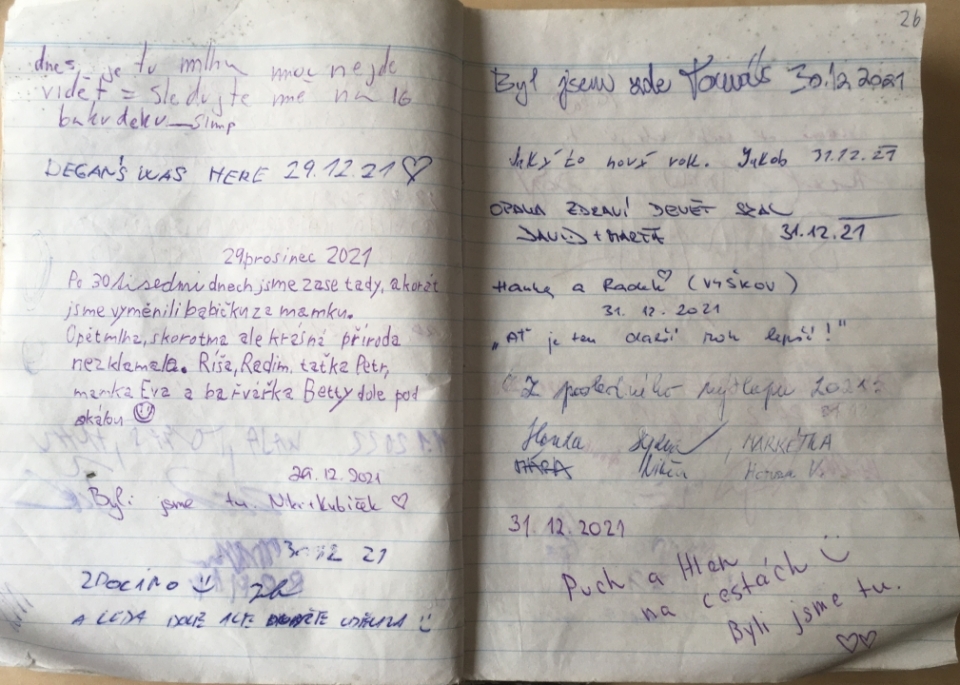 dnes je tu mlha moc nejde
videt = sledujte mě na IG
bakudeku_simp
DEGAŇS WAS HERE 29.12.21 ♡
29prosinec 2021
Po 30ti sedmi dnech jsme zase tady, akorát
jsme vyměnili babičku za mamku.
Opět mlha, skorotma ale krásná příroda
nezklamala. Ríša, Radim, taťka Petr,
mamka Eva a barvářka Betty dole pod
skálou ☺
29.12.2021
Byli jsme tu. Niki+Kubíček ♡
30.12 21
ZDOCÍNO
A LEDA DOLE ALE
26
Byl jsem zde Tomáš 30.12 2021
Jaký to nový rok. Jakob 31.12.21
OPAVA ZDRAVÍ DEVĚT SKAL
DAVID + MARŤA 31.12.21
Hanka a Radek ♡ (VYŠKOV)
31. 12. 2021
„Ať je ten další rok lepší!"
Z posledního výšlapu 2021:
Honza MARKÉTKA
31.12.2021
Puch a Hlen
na cestách
Byli jsme tu.
♡♡